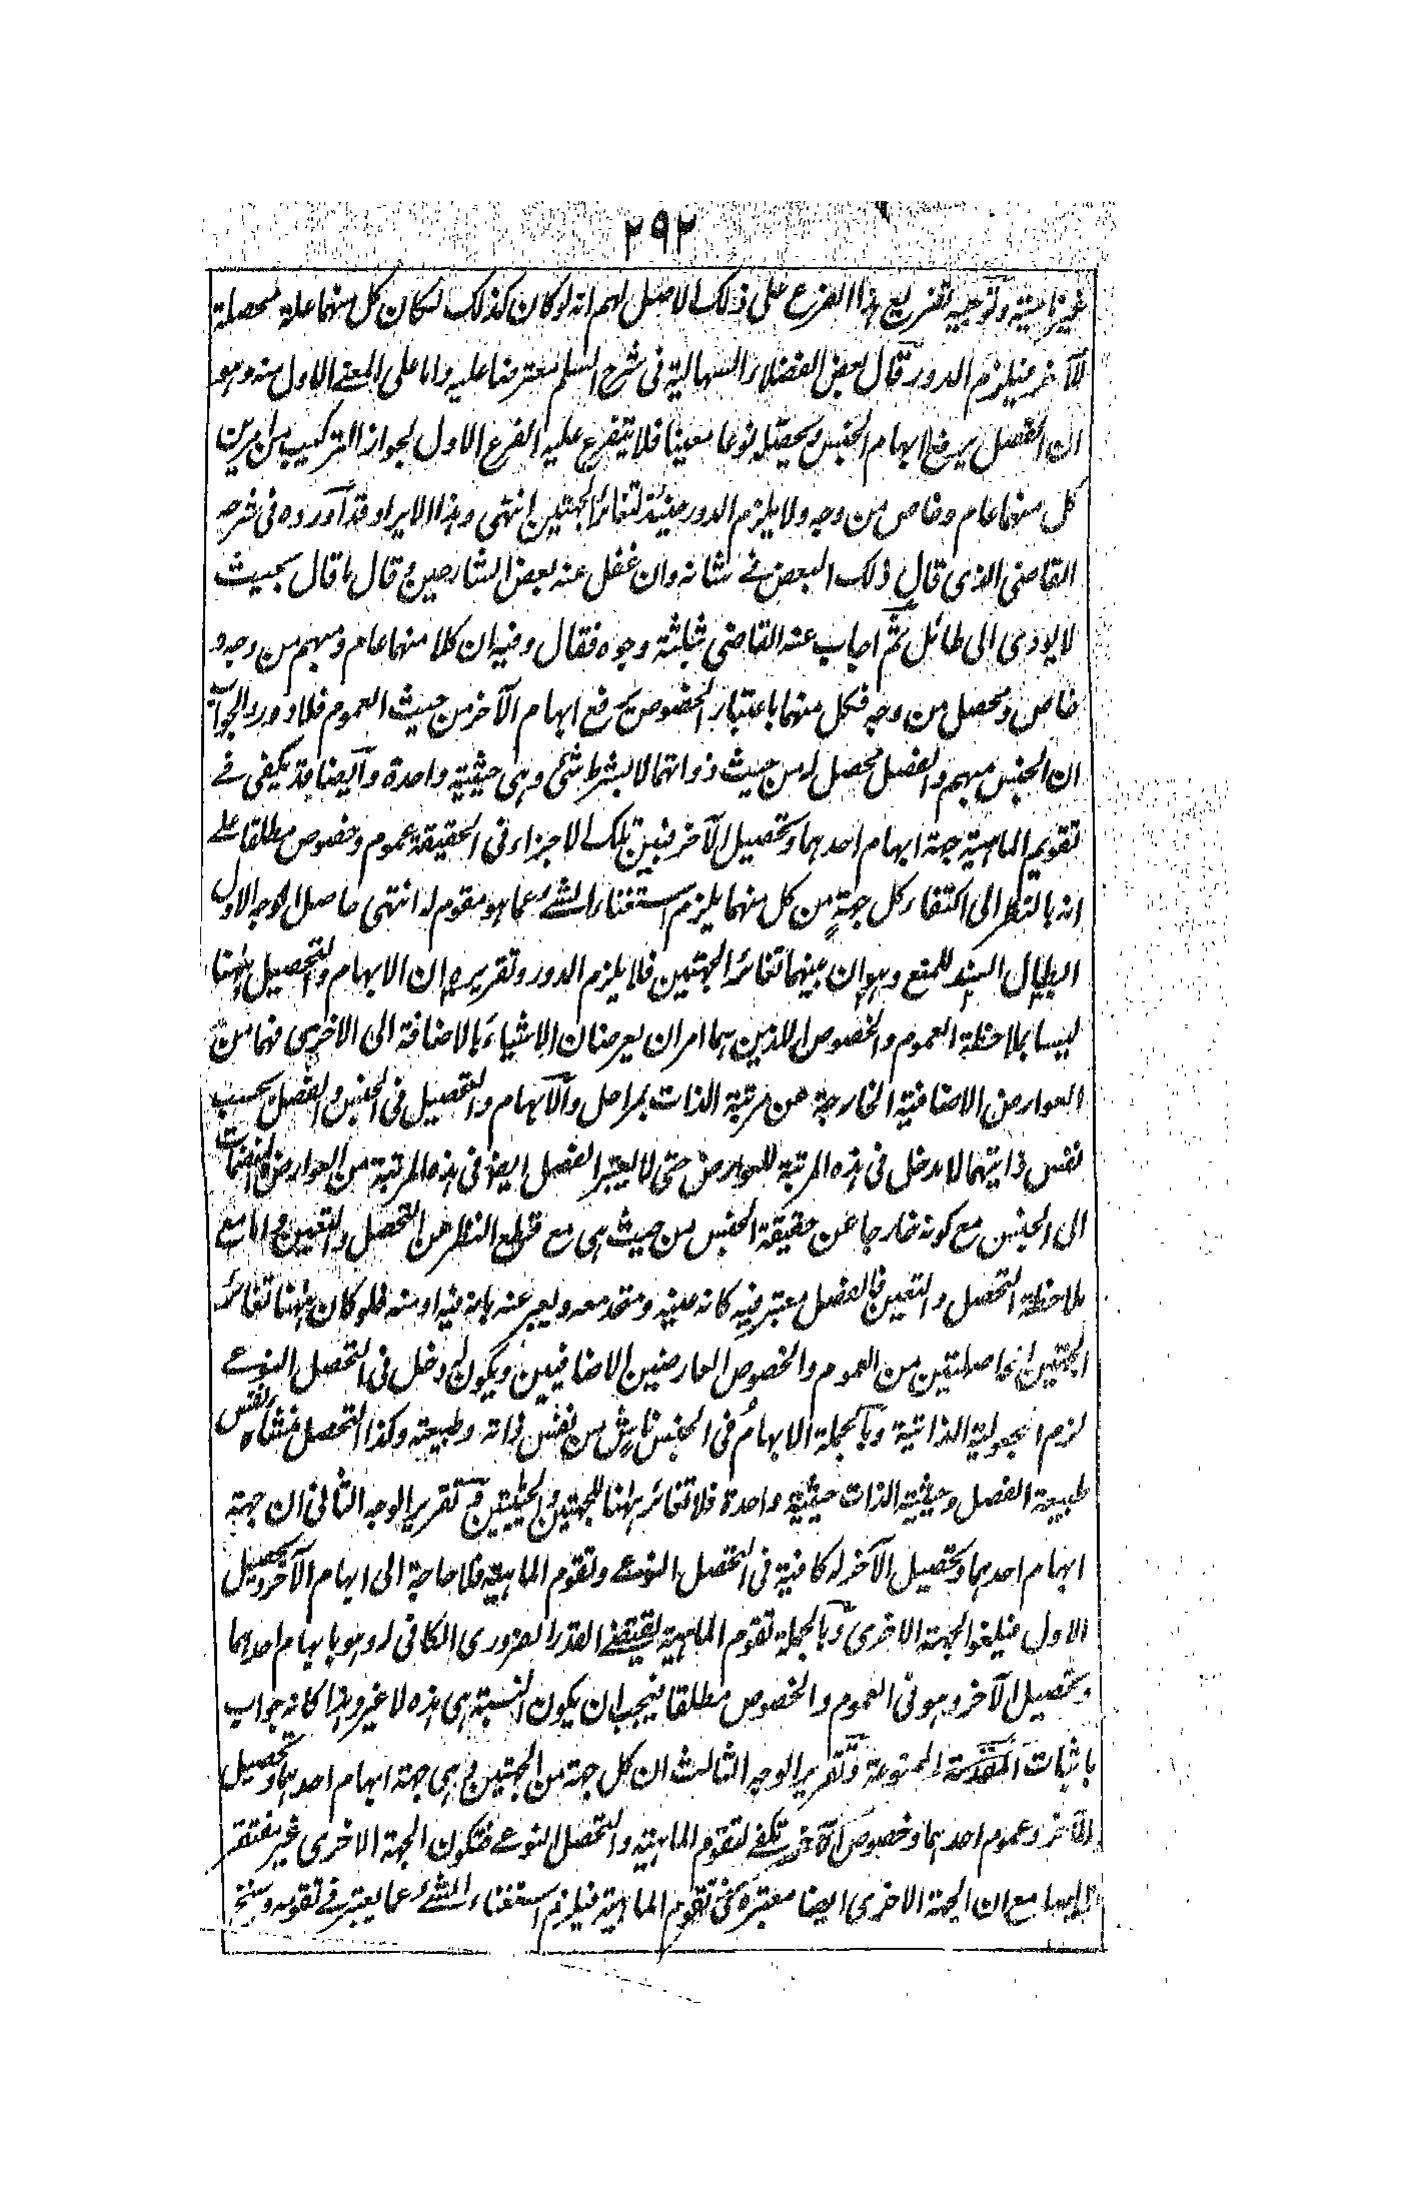 ٢٩٢
وتوجيه تفريع هذا الفرع على ذلك الاصل لهم انه لو كان كذلك لكان كل منهما علة محصلة
للآخر فيلزم الدور قال بعض الفضلاء السهالية فى شرح السلم معترضا عليه واما على المعنى الاول منه وهو
ان الفصل يرفع ابهام الجنس ويحصله نوعا معينا فلا يتفرع عليه الفرع الاول لجواز التركيب من امرين
كل منهما عام وخاص من وجه ولا يلزم الدور حينئذ لتغائر الجهتين انتهى وهذا الايراد قد آورده فى شرحه
القاضى الذى قال ذلك البعض فى شانه وان غفل عنه بعض الشارحين وقال ما قال بحيث
لا يودى الى طائل ثم اجاب عنه القاضى بثلثة وجوه فقال وفيه ان كلا منهما عام ومبهم من وجه و
خاص ومحصل من وجه فكل منهما باعتبار الخصوص يرفع ابهام الآخر من حيث العموم فلا دور والجواب
ان الجنس مبهم والفصل محصل له من حيث ذواتهما لا بشرط شئ وهى حيثية واحدة وآيضا قد يكفى فى
تقويم الماهية جهة ابهام احدهما وتحصيل الآخر فبين تلك الاجزاء فى الحقيقة عموم وخصوص مطلقا على
انه بالنظر الى اكتفاء كل جهة من كل منهما يلزم استغناء الشئ عما هو مقوم له انتهى حاصل الوجه الاول
ابطال السند للمنع وهو ان بينهما تغائر الجهتين فلا يلزم الدور وتقريره ان الابهام والتحصيل ههنا
ليسا بملاحظة العموم والخصوص اللذين هما امران يعرضان الاشياء بالاضافة الى الاخرى فهما من
العوارض الاضافية الخارجة عن مرتبة الذات بمراحل والآبهام والتحصيل فى الجنس والفصل بحسب
نفس ذاتيهما لا دخل فى هذه المرتبة للعوارض حتى لا يعتبر الفصل ايضا فى هذه المرتبة من العوارض
الى الجنس مع كونه خارجا عن حقيقة الجنس من حيث هى مع قطع النظر عن التحصل والتعين واما مع
ملاحظة التحصل والتعين فالفصل معتبر فيه كانه عينه ومتحد معه ويعبر عنه بانه فيه او منه فلو كان ههنا تغائر
الجهتين الحاصلتين من العموم والخصوص العارضين الاضافيين ويكون له دخل فى التحصل النوعى
لزم المجعولية الذاتية وبآلجملة الابهام فى الجنس ناش من نفس ذاته وطبيعته وكذا التحصل منشاه نفس
طبيعة الفصل وحيثية الذات حيثية واحدة فلا تغائر ههنا للجهتين والحيثيتين تقرير الوجه الثانى ان جهة
ابهام احدهما وتحصيل الآخر له كافية فى التحصل النوعى وتقوم الماهية فلا حاجة الى ابهام الآخر وتحصيل
الاول فيلغو الجهة الاخرى وبآلجملة تقوم الماهية يقتضى القدر الضرورى الكافى له وهو بابهام احدهما
وتحصيل الآخر وهو فى العموم والخصوص مطلقا فيجب ان يكون النسبة هى هذه لا غير وهذا كانه جواب
باثبات المقدمة الممنوعة وتقرير الوجه الثالث ان كل جهة من الجهتين وهى جهة ابهام احدهما وتحصيل
الآخر وعموم احدهما وخصوص الآخر تكفى لتقوم الماهية والتحصل النوعى فتكون الجهة الاخرى غير مفتقر
اليها مع ان الجهة الاخرى ايضا معتبرة فى تقوم الماهية فيلزم استغناء الشئ عما يعتبر فى تقومه